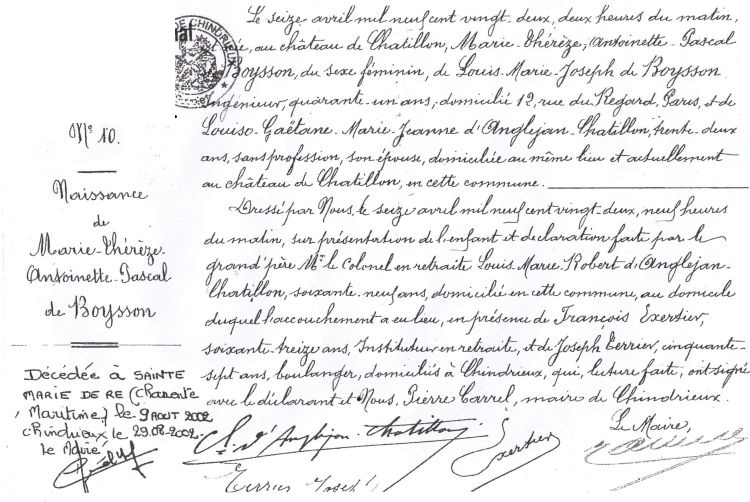 DE CHINDRIEUX
N° 10.
Naissance
de
Marie-Thérèze-
Antoinette-Pascal
de Boysson
Décédée à SAINTE
MARIE DE RE (Charente
Maritime) le 9 AOUT 2002
Chindrieux le 29.08.2002.
Le Maire
Le seize avril mil neuf cent vingt-deux, deux heures du matin,
est née, au château de Chatillon, Marie-Thérèze, Antoinette-Pascal
de Boysson, du sexe féminin, de Louis-Marie-Joseph de Boysson
Ingénieur, quarante-un ans, domicilié 12, rue du Regard, Paris, et de
Louise-Gaëtane-Marie-Jeanne d'Anglejan-Chatillon, trente-deux
ans, sans profession, son épouse, domiciliée au même lieu et actuellement
au château de Chatillon, en cette commune.
Dressé par Nous, le seize avril mil neuf cent vingt-deux, neuf heures
du matin, sur présentation de l'enfant et déclaration faite par le
grand'père Mr le Colonel en retraite Louis-Marie-Robert d'Anglejan-
Chatillon, soixante-neuf ans, domicilié en cette commune, au domicile
duquel l'accouchement a eu lieu, en présence de François Exertier,
soixante-treize ans, Instituteur en retraite, et de Joseph Terrier, cinquante-
sept ans, boulanger, domiciliés à Chindrieux, qui, lecture faite, ont signé
avec le déclarant et Nous, Pierre Carrel, maire de Chindrieux.
Le Maire,
d'Anglejan-Chatillon
Exertier
Terrier Joseph